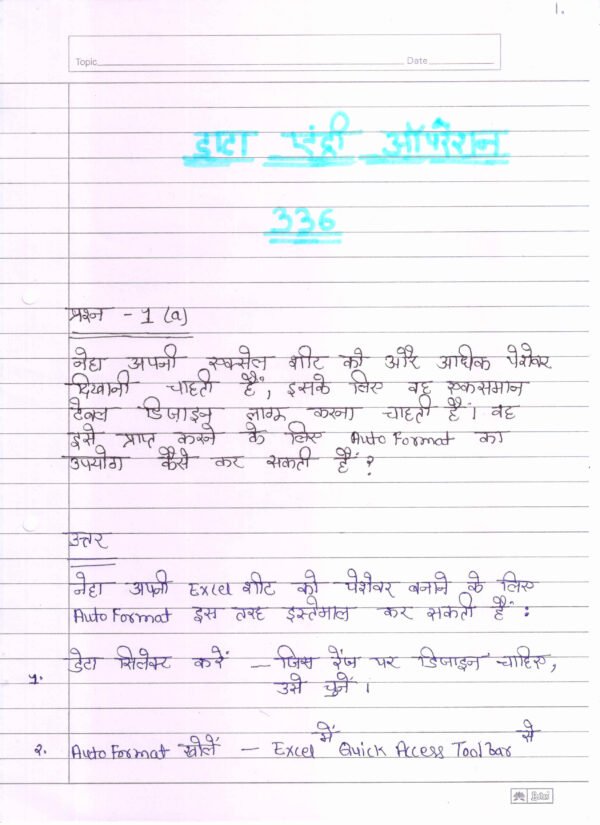 1.
Topic
Date
डाटा एंट्री ऑपरेशन
336
प्रश्न - 1 (a)
नेहा अपनी एक्सेल शीट को और अधिक पेशेवर
दिखानी चाहती हैं, इसके लिए वह एकसमान
टेबल डिज़ाइन लागू करना चाहती हैं। वह
इसे प्राप्त करने के लिए Auto Format का
उपयोग कैसे कर सकती हैं?
उत्तर
नेहा अपनी Excel शीट को पेशेवर बनाने के लिए
Auto Format इस तरह इस्तेमाल कर सकती हैं :
1. डेटा सिलेक्ट करें – जिस रेंज पर डिजाइन चाहिए,
उसे चुनें।
2. Auto Format खोलें – Excel में Quick Access Toolbar से